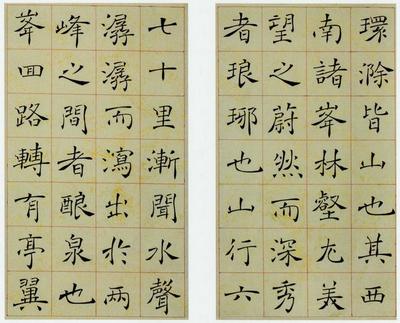 環滁皆山也其西
南諸峯林壑尤美
望之蔚然而深秀
者琅琊也山行六
七十里漸聞水聲
潺潺而瀉出於兩
峰之間者酿泉也
峯回路轉有亭翼